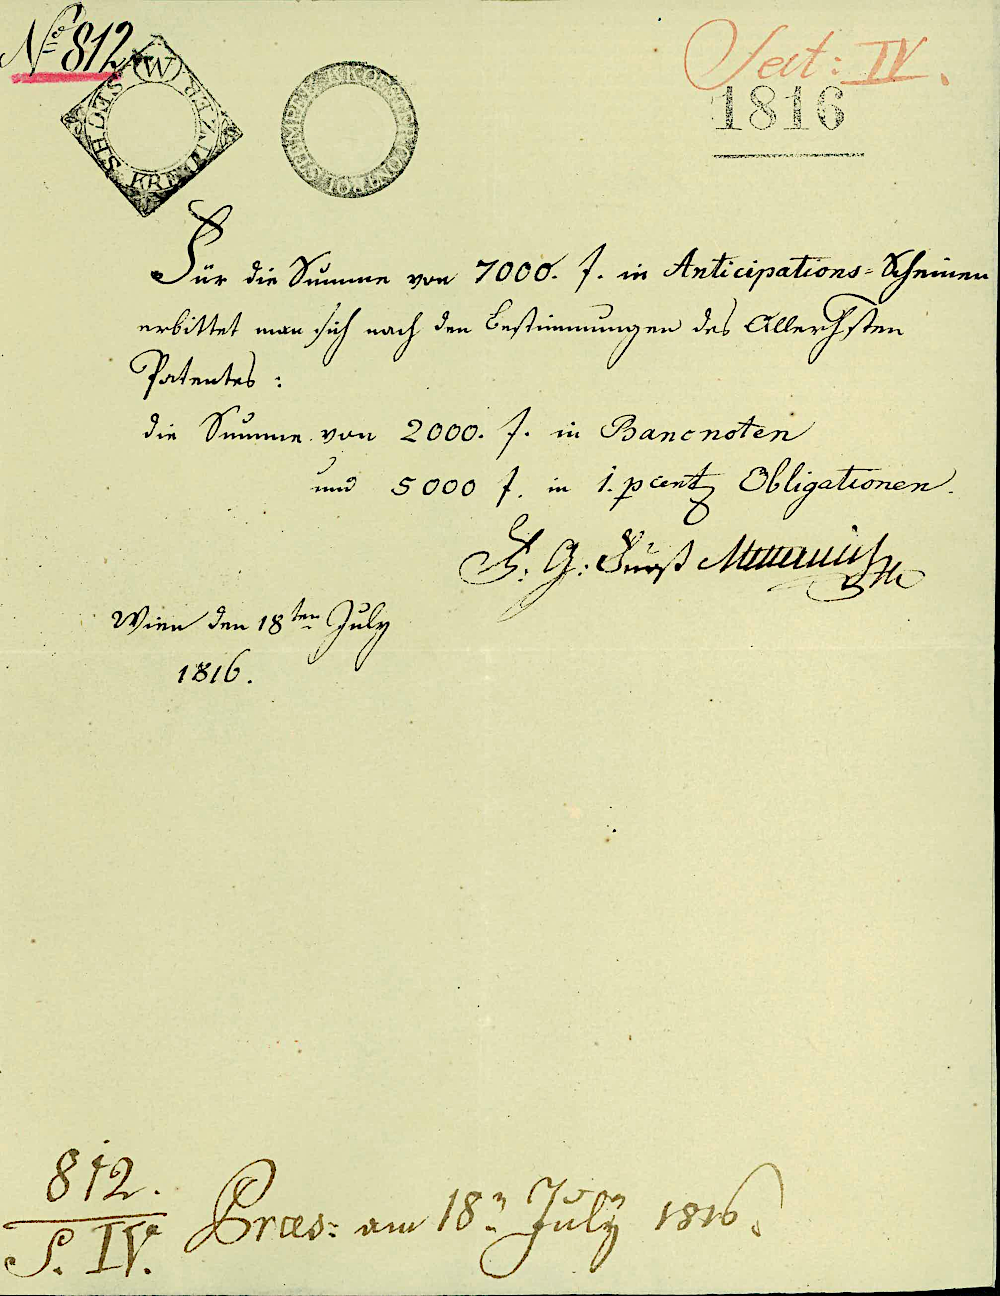 Nro 812
Sect: IV.
1816
W
SECHS
DREY
KREUZER
Für die Summe von 7000. f. in Anticipations-Scheinen
erbittet man sich nach den Bestimmungen des Allerhsten
Patentes:
die Summe von 2000. f. in Bancnoten
und 5000 f. in 1. pcent Obligationen.
F. G. Fürst Metternich
Wien den 18ten July
1816.
812.
S. IV.
Praes: am 18n July 1816.